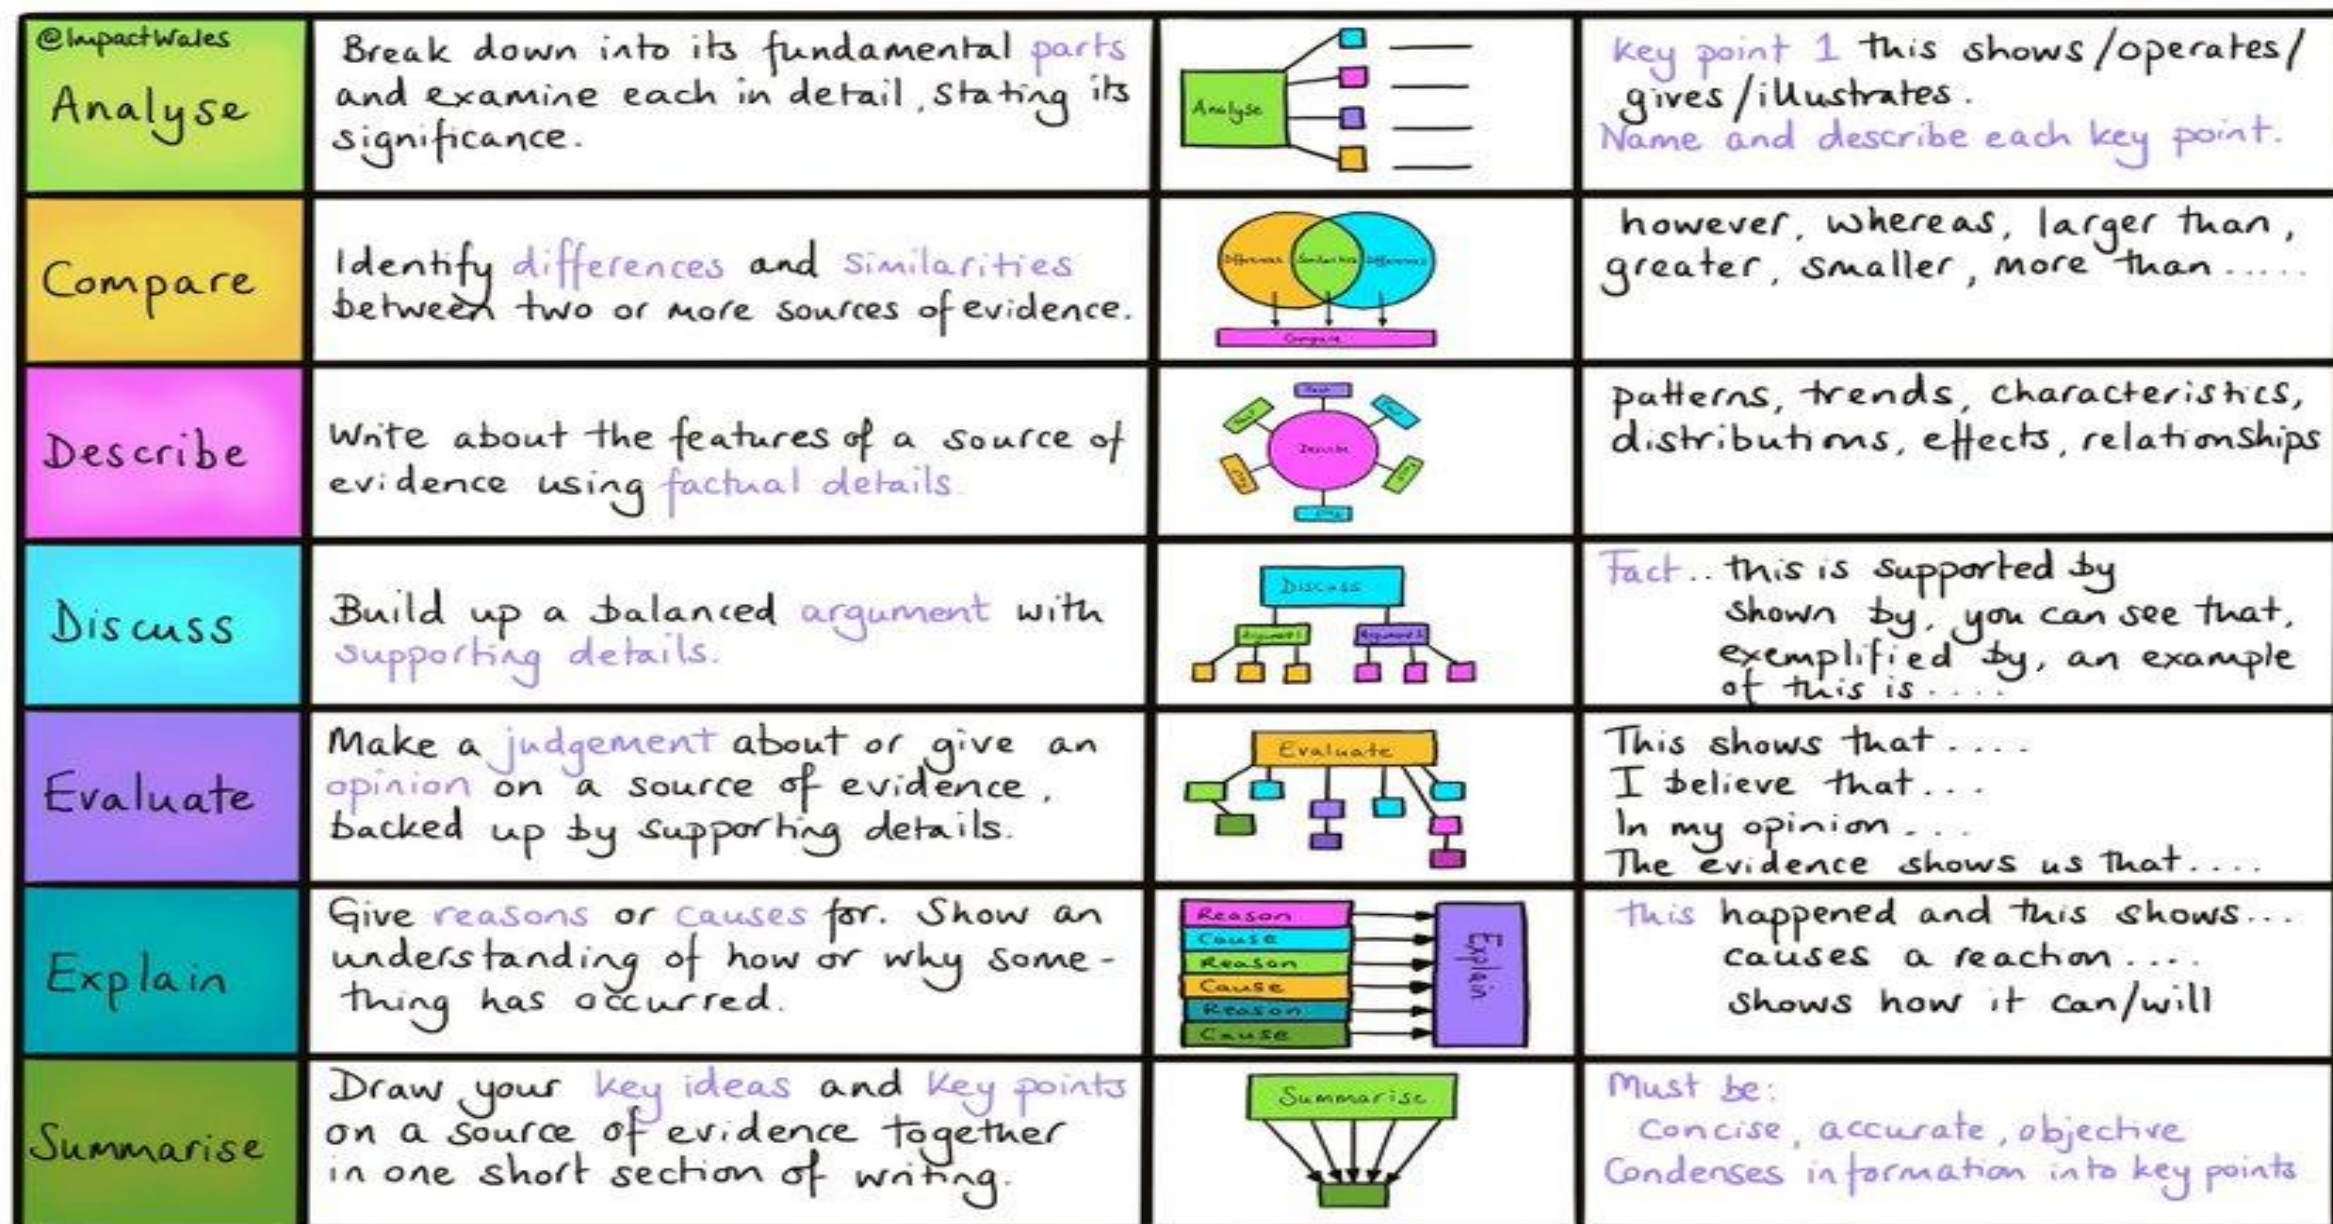 @ImpactWales
Analyse
Break down into its fundamental parts
and examine each in detail, stating its
significance.
Analyse
key point 1 this shows/operates/
gives/illustrates.
Name and describe each key point.
Compare
Identify differences and similarities
between two or more sources of evidence.
Differences Similarities Differences
Compare
however, whereas, larger than,
greater, smaller, more than.....
Describe
Write about the features of a source of
evidence using factual details.
Describe
patterns, trends, characteristics,
distributions, effects, relationships
Discuss
Build up a balanced argument with
supporting details.
Discuss
Fact.. this is supported by
shown by, you can see that,
exemplified by, an example
of this is ....
Evaluate
Make a judgement about or give an
opinion on a source of evidence,
backed up by supporting details.
Evaluate
This shows that ....
I believe that ...
In my opinion ....
The evidence shows us that....
Explain
Give reasons or causes for. Show an
understanding of how or why some-
thing has occurred.
Reason
Cause
Reason
Cause
Reason
Cause
Explain
this happened and this shows...
causes a reaction ....
shows how it can/will
Summarise
Draw your key ideas and key points
on a source of evidence together
in one short section of writing.
Summarise
Must be:
Concise, accurate, objective
Condenses information into key points